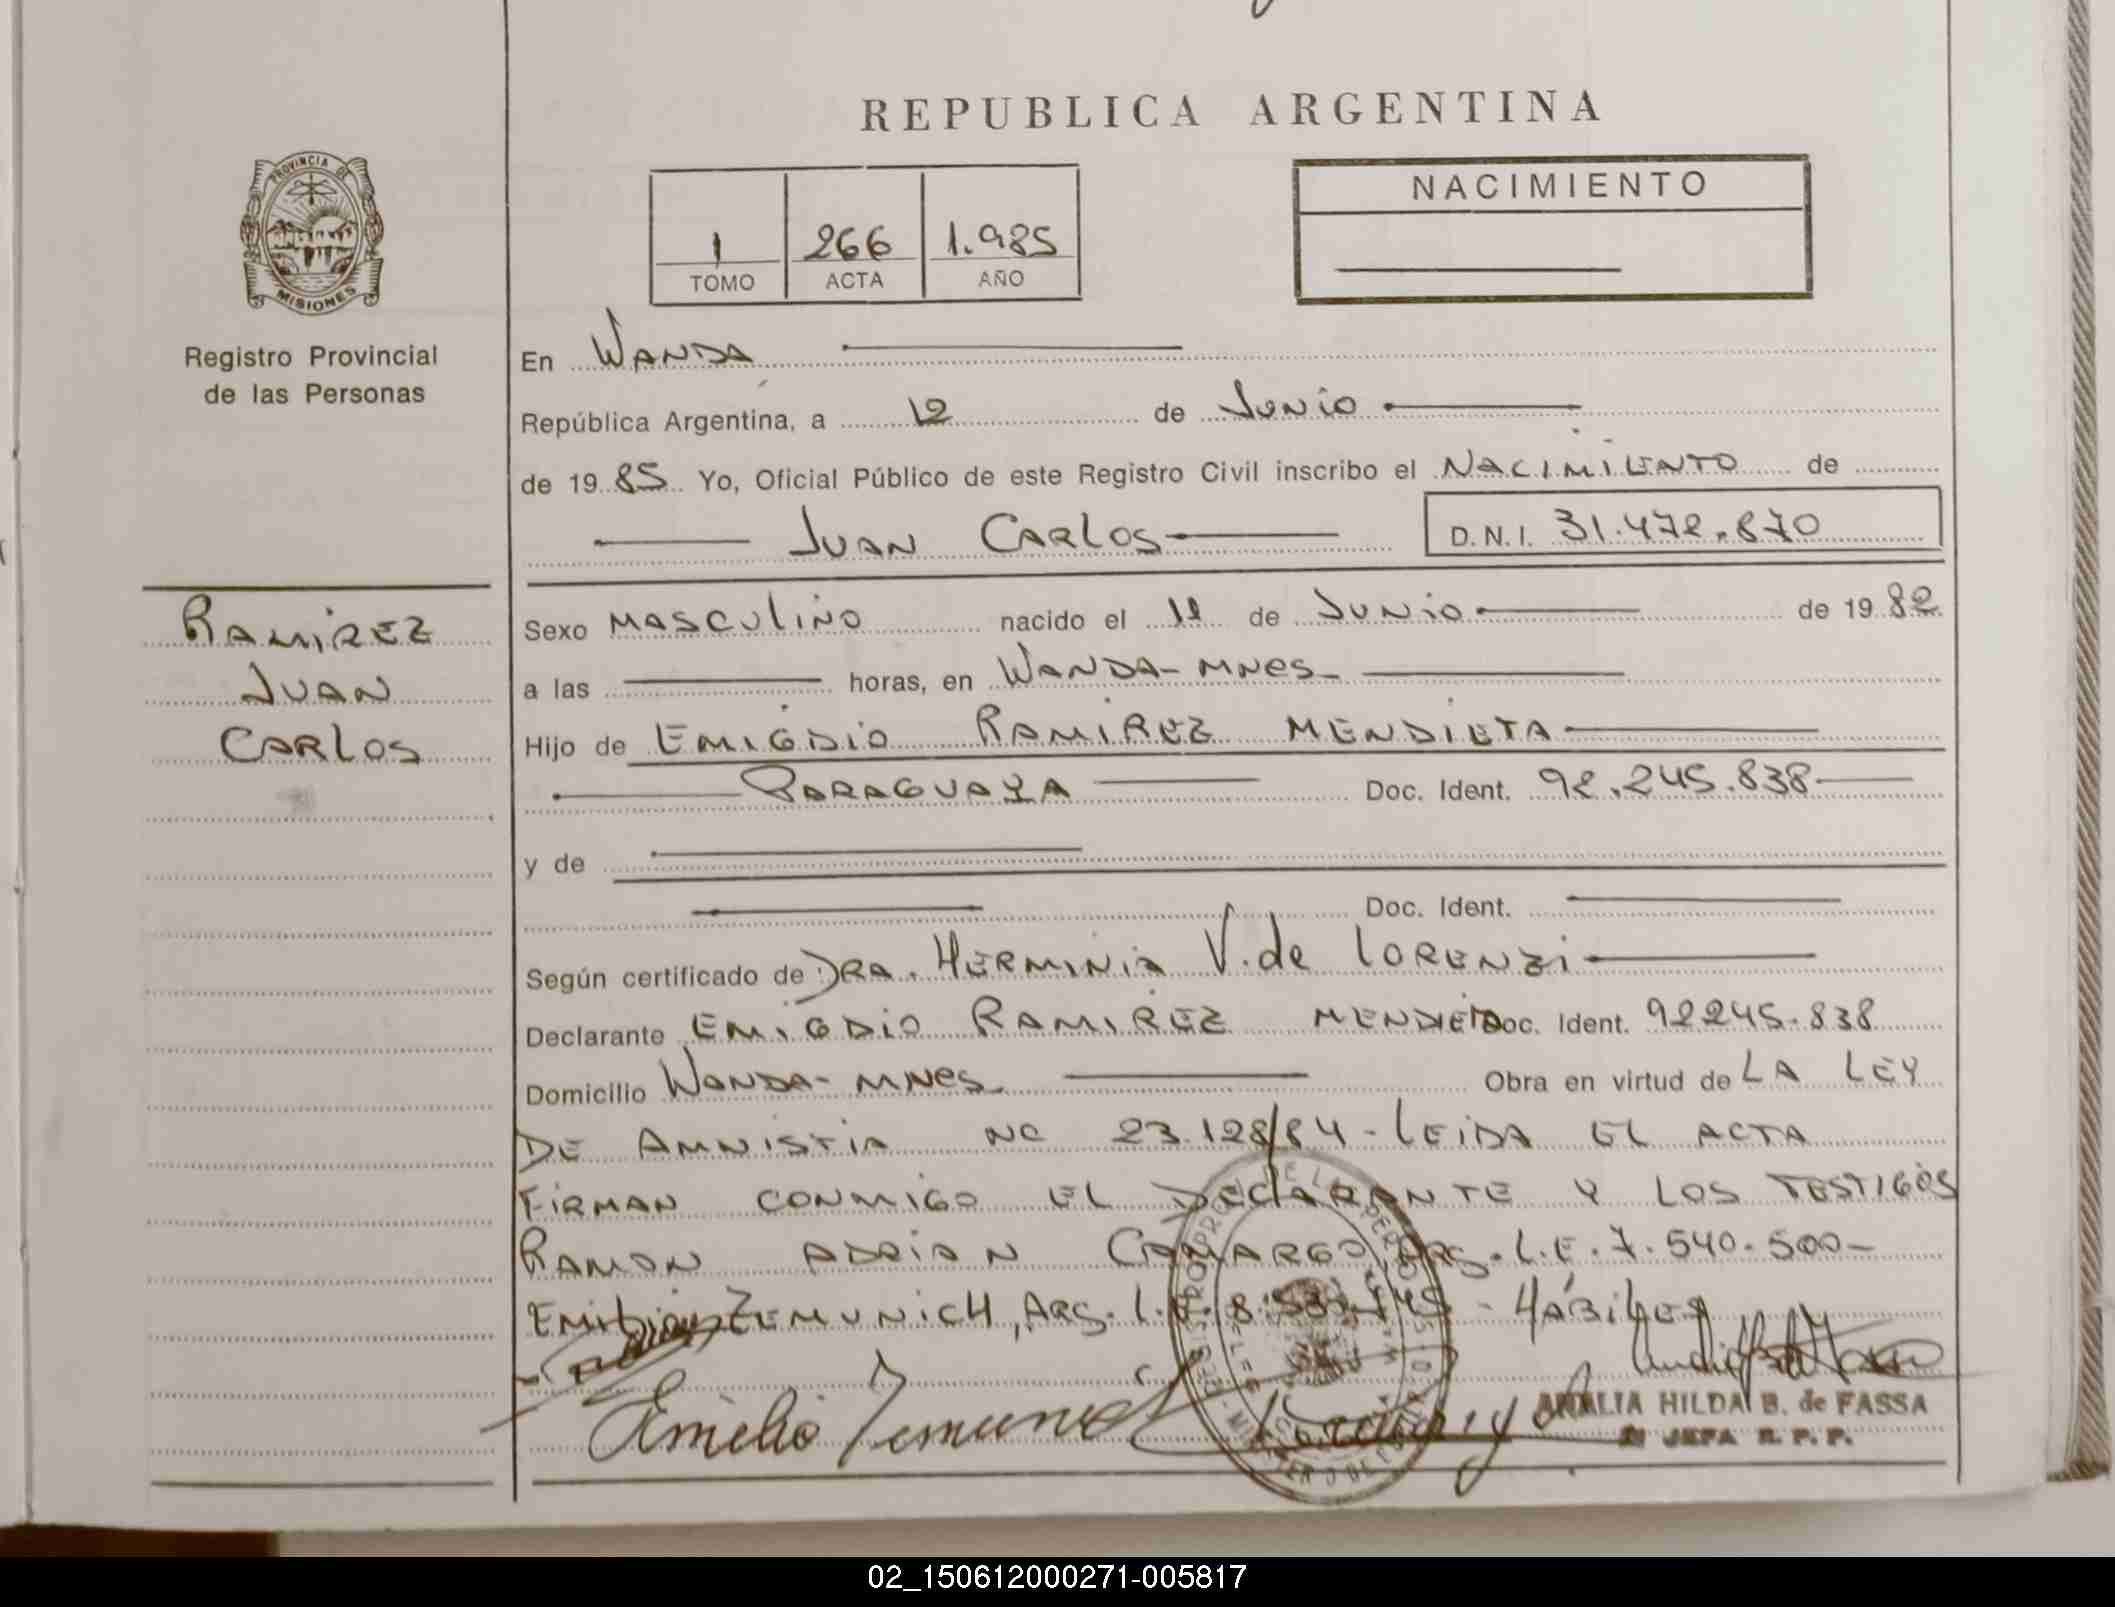 REPUBLICA ARGENTINA
PROVINCIA DE
MISIONES
Registro Provincial
de las Personas
1 266 1.985
TOMO ACTA AÑO
NACIMIENTO
En WANDA
República Argentina, a 12 de JUNIO
de 1985 Yo, Oficial Público de este Registro Civil inscribo el NACIMIENTO de
JUAN CARLOS D.N.I. 31.472.870
RAMIREZ
JUAN
CARLOS
Sexo MASCULINO nacido el 11 de JUNIO de 1982
a las horas, en WANDA-MNES-
Hijo de EMIGDIO RAMIREZ MENDIETA
PARAGUAYA Doc. Ident. 92.245.838
y de
Doc. Ident.
Según certificado de DRA. HERMINIA V. de LORENZI
Declarante EMIGDIO RAMIREZ MENDIETA Doc. Ident. 92245.838
Domicilio WANDA-MNES- Obra en virtud de LA LEY
DE AMNISTIA Nº 23.128/84-LEIDA EL ACTA
FIRMAN CONMIGO EL DECLARANTE Y LOS TESTIGOS
RAMON ADRIAN CAMARGO, ARG. L.E. 7.540.500-
EMILIO ZEMUNICH, ARG. L.E. - HÁBILES
Emilio Zemunich
AMALIA HILDA B. de FASSA
JEFA R. P. P.
02_150612000271-005817